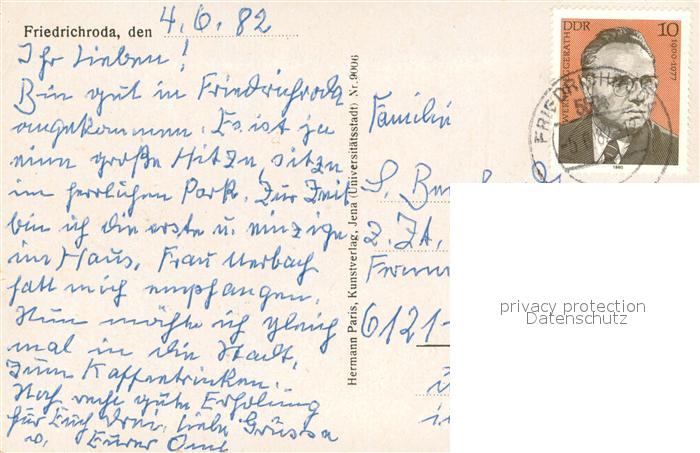 Friedrichroda, den 4.6.82
Ihr Lieben!
Bin gut in Friedrichroda
angekommen. Es ist ja
eine große Hitze, sitze
im herrlichen Park. Zur Zeit
bin ich die erste u. einzige
im Haus, Frau Auerbach
hatt mich empfangen.
Nun möchte ich gleich
mal in die Stadt,
zum Kaffeetrinken.
Noch recht gute Erholung
für Euch drei. liebe Grüsse
v. Eurer Omi
Hermann Paris, Kunstverlag, Jena (Universitätsstadt) Nr. 9006
DDR 10
1900-1977
1980
Familie
S.
z. ZA.
6121-
privacy protection
Datenschutz